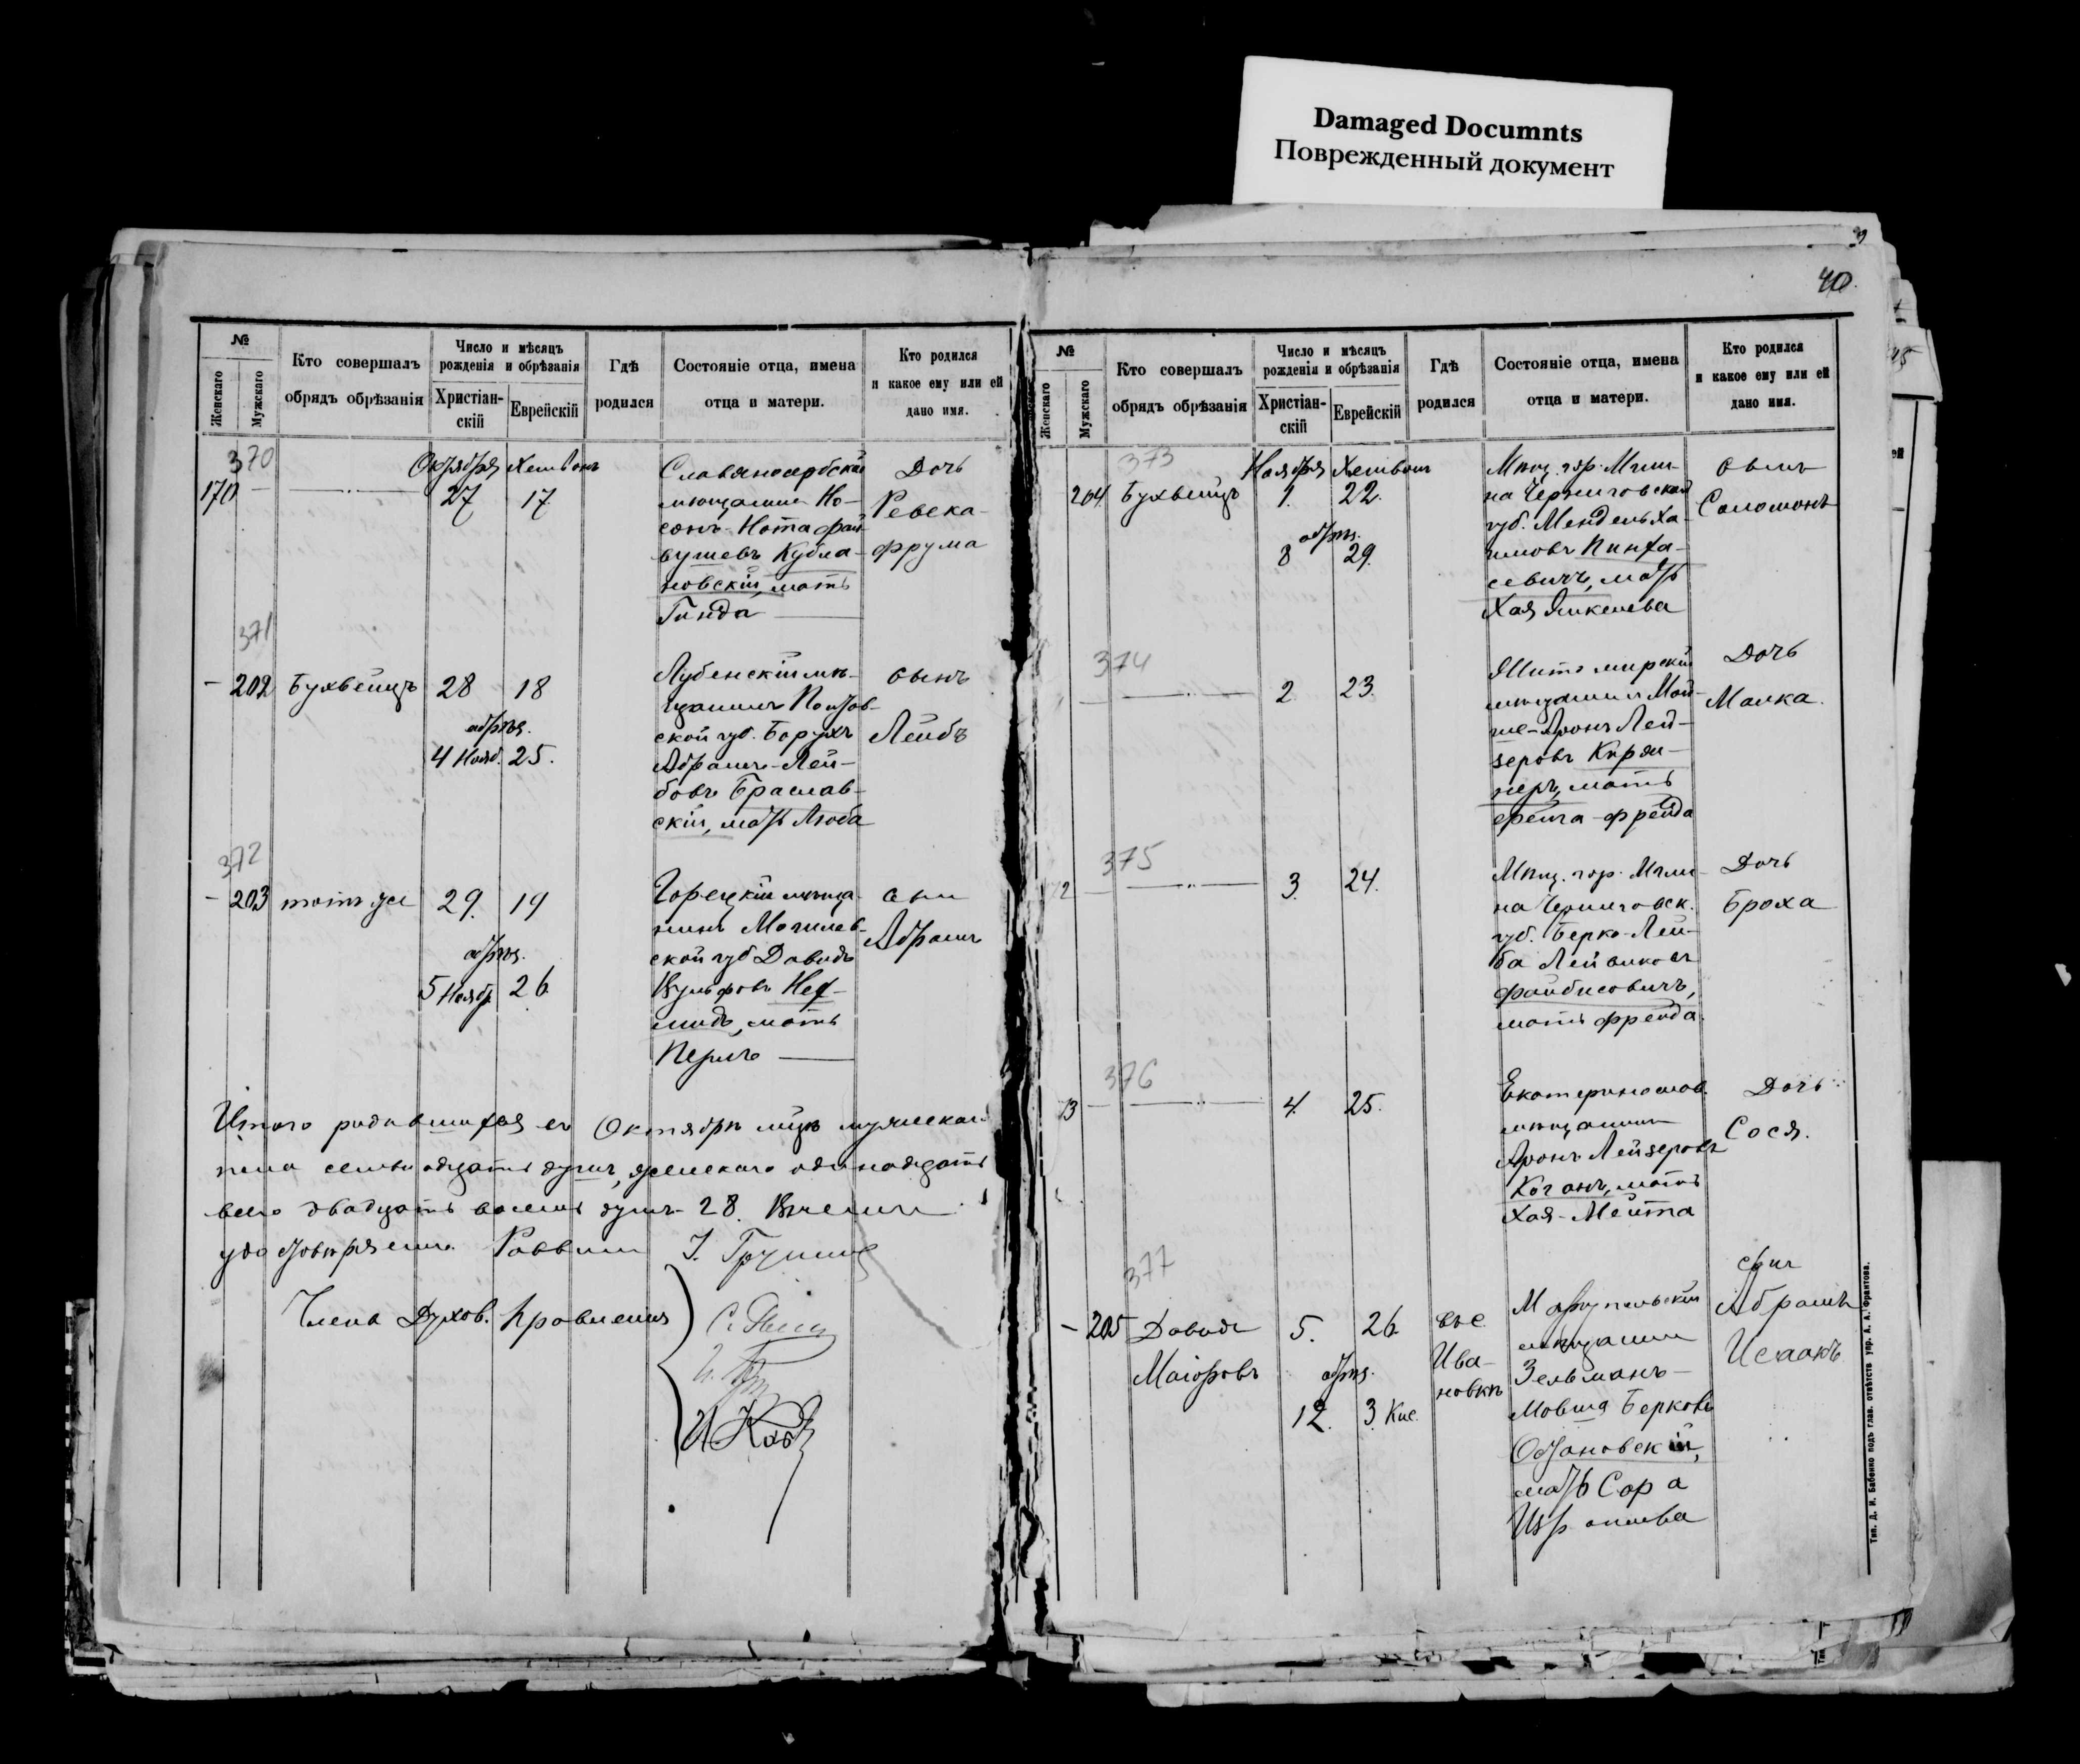 Damaged Documnts
Поврежденный документ
40
№
Женскаго
Мужскаго
Кто совершалъ
обрядъ обрѣзанія
Число и мѣсяцъ
рожденія и обрѣзанія
Христіан-
скій
Еврейскій
Гдѣ
родился
Состояніе отца, имена
отца и матери.
Кто родился
и какое ему или ей
дано имя.
370
170
Октября Хешвонъ
27 17
Славяносербскій
мѣщанинъ Но-
сонъ-Нота Фай-
вушевъ Кубла-
новскій, мать
Гинда
Дочь
Ревека-
Фрума
371
202 Бухвейцъ 28 18
обрѣз.
4 Нояб. 25.
Лубенскій мѣ-
щанинъ Полтав-
ской губ. Борухъ
Абрамъ-Лей-
бовъ Браслав-
скій, мать Люба
сынъ
Лейбъ
372
203 тотъ же 29. 19
обрѣз.
5 Ноябр. 26.
Горецкій мѣща-
нинъ Могилев-
ской губ Давидъ
Вульфовъ
мать
Перль
сын
Абрамъ
Итого родившихся въ Октябрѣ мѣцѣ мужескаго
пола семьнадцать душъ, женскаго одинадцать
всего двадцать восемь душъ 28. Въ чемъ и
удостовѣряемъ. Раввинъ
Члены Духов. Правленія
№
Женскаго
Мужскаго
Кто совершалъ
обрядъ обрѣзанія
Число и мѣсяцъ
рожденія и обрѣзанія
Христіан-
скій
Еврейскій
Гдѣ
родился
Состояніе отца, имена
отца и матери.
Кто родился
и какое ему или ей
дано имя.
373
204 Бухвейцъ
Ноября Хешвонъ
1. 22.
обрѣз.
8 29.
Мѣщ. гор. Мгли-
на Черниговской
губ. Мендель Ха-
имовъ Пинха-
севичъ, мать
Хая Янкелева
сынъ
Соломонъ
374
2. 23.
Житомирскій
мѣщанинъ Мой-
ше-Аронъ Лей-
зеровъ Киржнеръ, мать
Фрейда
Дочь
Малка.
375
3. 24.
Мѣщ. гор. Мгли-
на Черниговск.
губ. Берко-Лей-
ба Лейзиковъ
Файбисовичъ,
мать Фрейда.
Дочь
Броха
376
4. 25.
Екатеринослав.
мѣщанинъ
Аронъ Лейзеровъ
Коганъ, мать
Хая-Мейта
Дочь
Сося.
377
205 Давидъ
Маіоровъ
5. 26.
обрѣз.
12. 3 Кис.
въ с.
Ива-
новкѣ
Маріупольскій
мѣщанинъ
Зельманъ-
Мовша Берковъ
мать Сора
Израилева
сынъ
Абрамъ
Исаакъ
Тип. Д. И. Бабенко подъ глав. отвѣтств упр. А. А. Франтова.